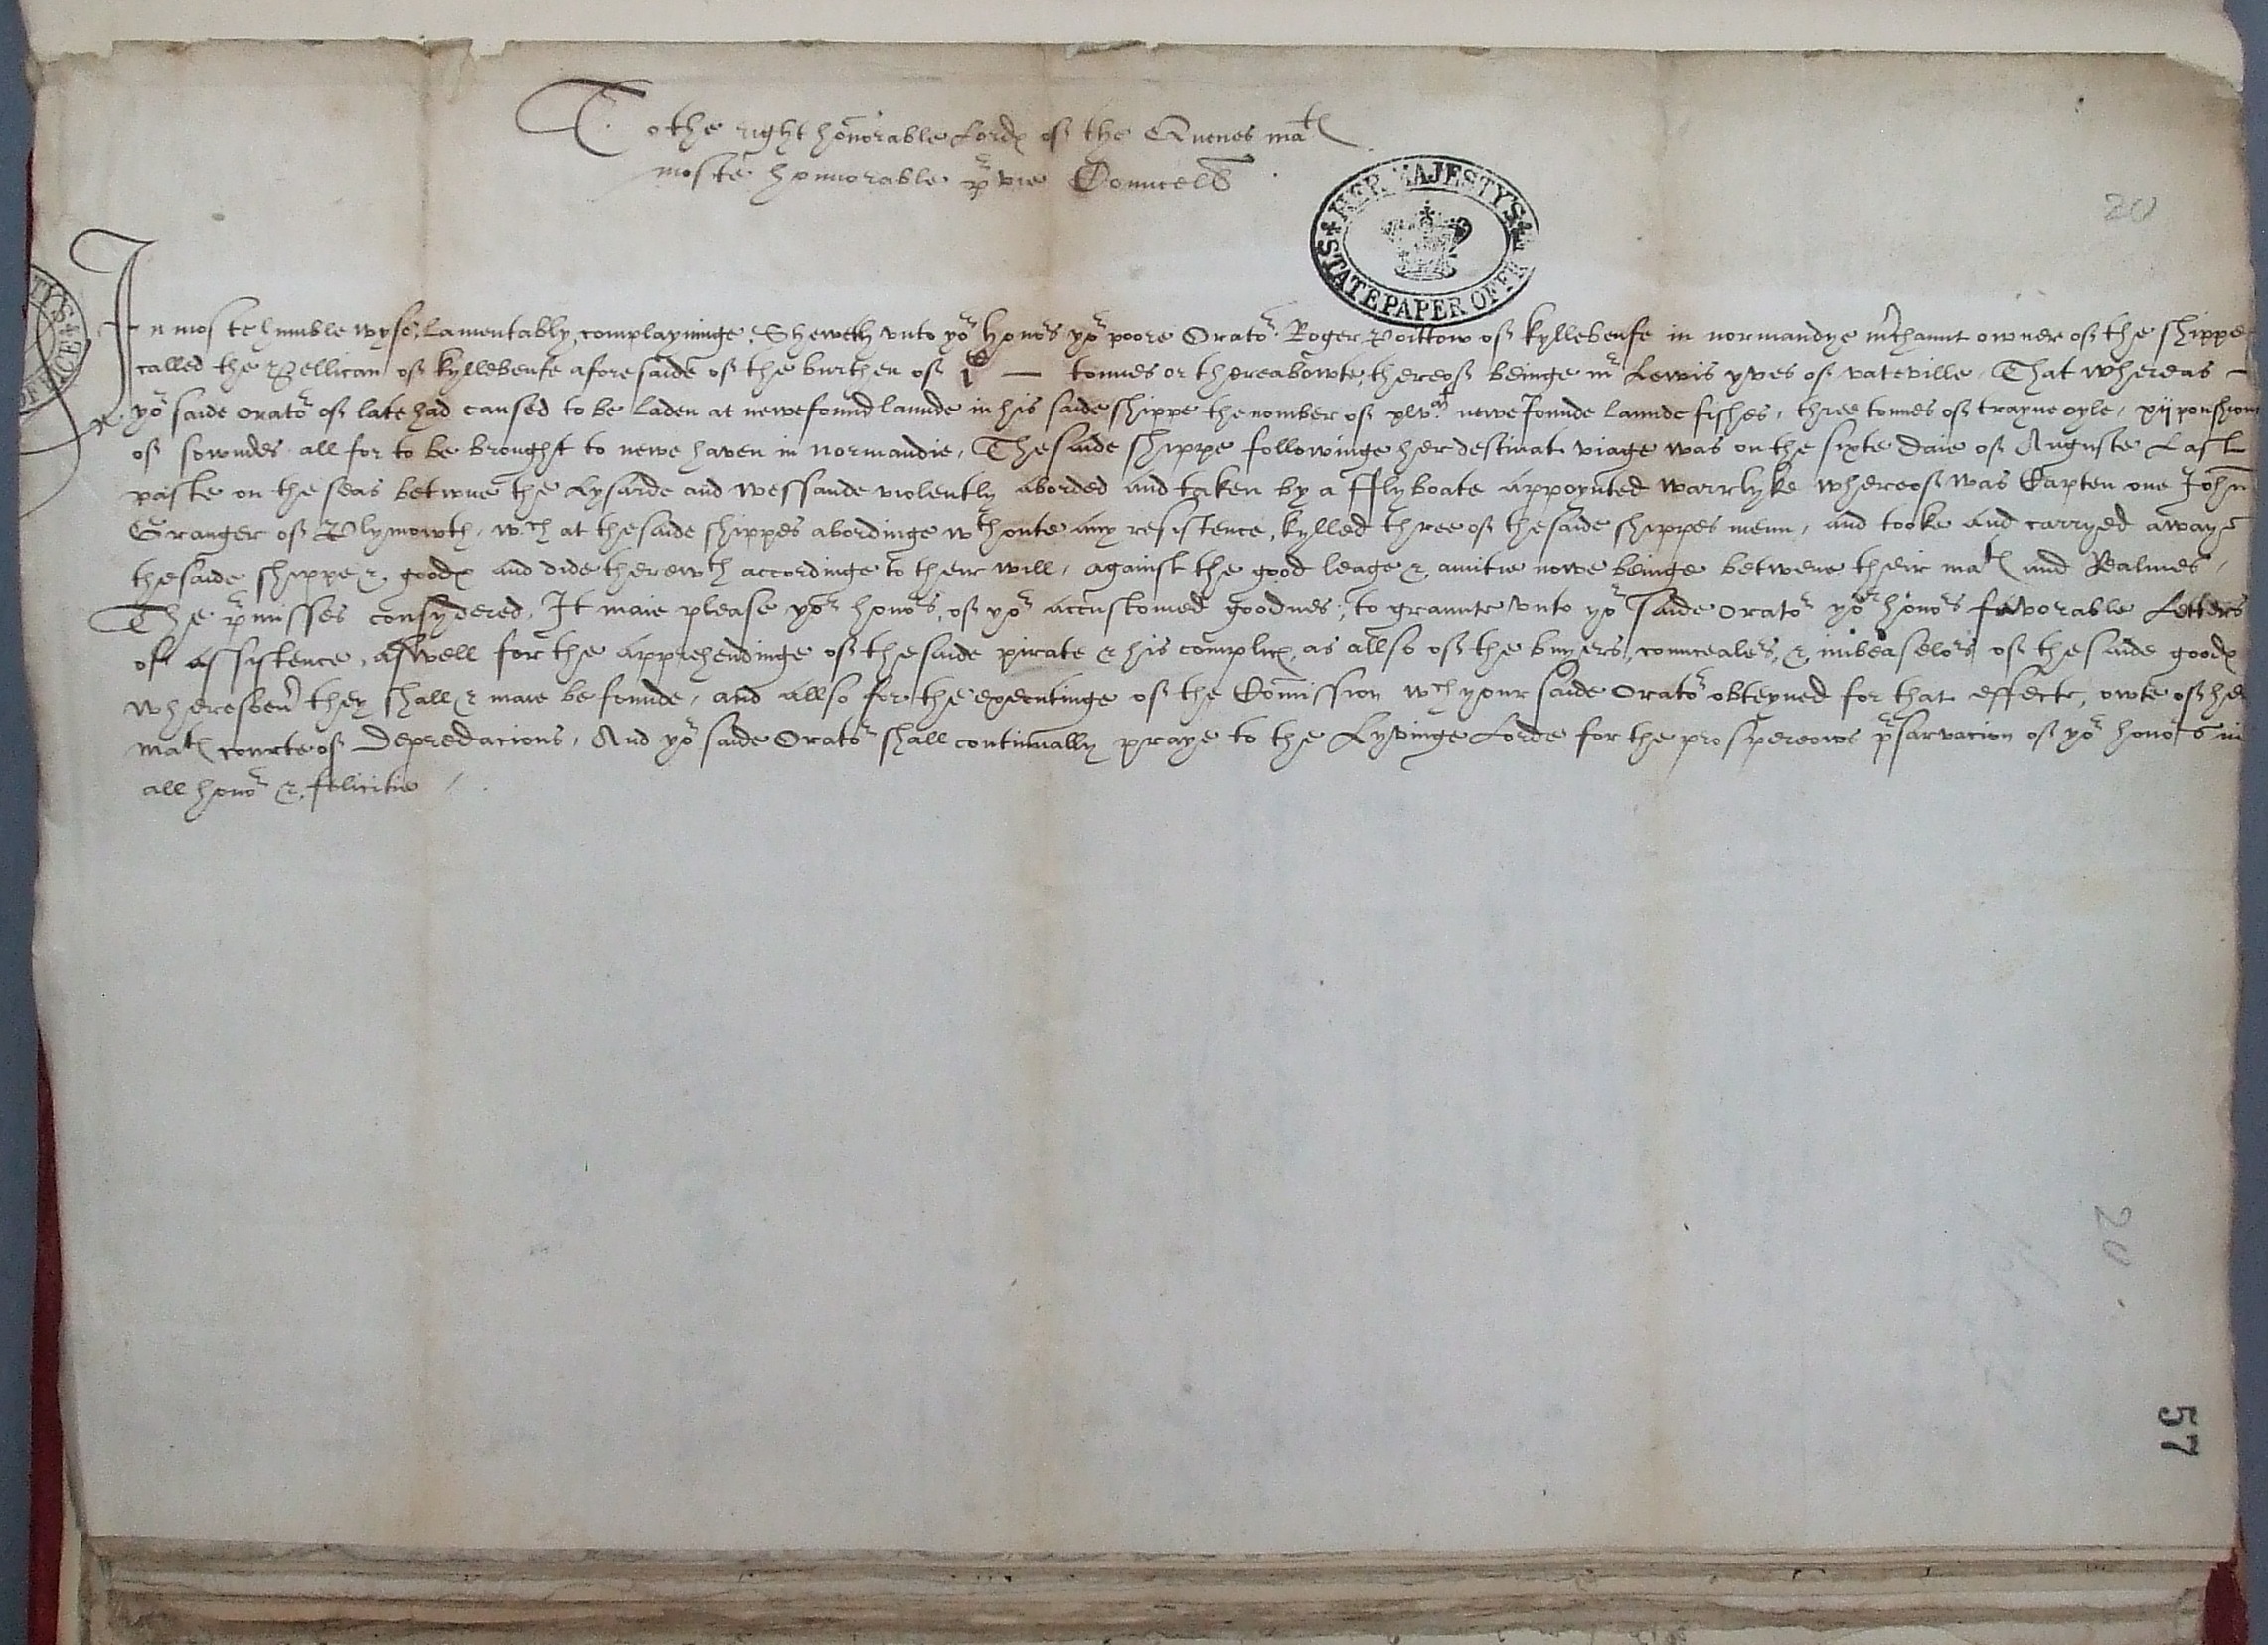 To the right honorable Lordes of the Quenes matie
moste honnorable privie Councell
HER MAJESTY'S STATE PAPER OFFI
20
In moste humble wyse, Lamentably complayninge, Sheweth unto yor Honors yor poore Orator Roger Poittow of Kyllebeufe in normandye mrchaunt owner of the shippe
called the Pellican of Kyllebeufe aforesaide of the burthen of — tonnes or thereabowte, thereof beinge mr Lewis yves of vateville, That whereas –
yor saide Orator of late had caused to be Laden at newefoundlaunde in his saide shippe the nomber of xlvm newefounde launde fishes, three tonnes of trayne oyle, xij ponshions
of sowndes all for to be brought to newe haven in Normandie, The saide shippe followinge her destinat viage was on the sixte daie of Auguste Last
paste on the seas betwne the Lysarde and wessande violently aborded and taken by a fflyboate appoynted warrlyke whereof was Capten one John
Granger of Plymowth, wch at the saide shippes abordinge wthoute any resistence, kylled three of the saide shippes menn, and tooke and carryed awaye
the saide shippe & goodes and dide therewth accordinge to their will, against the good leage & amitie nowe beinge betwene their maties and Realmes,
The premisses consydered, It maie please yor honors, of yor accustomed goodnes, to graunte unto yor saide Orator yor honors favorable Letters
of assistence, aswell for the apprehendinge of the saide pirate & his complices, as allso of the buyers, councealers, & imbeaselors of the saide goodes
wheresoevr they shall & maie be founde, and allso for the executinge of the Comission wch your saide Orator obteyned for that effecte, owte of her
maties courte of Depredacions, And yor saide Orator shall continually praye to the Lyvinge Lorde for the prosypereows presarvacion of yor honors in
all honor & felicitie
20
57